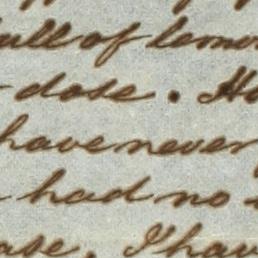 full of lemon
dose. Ha
have never
had no
ase. I have